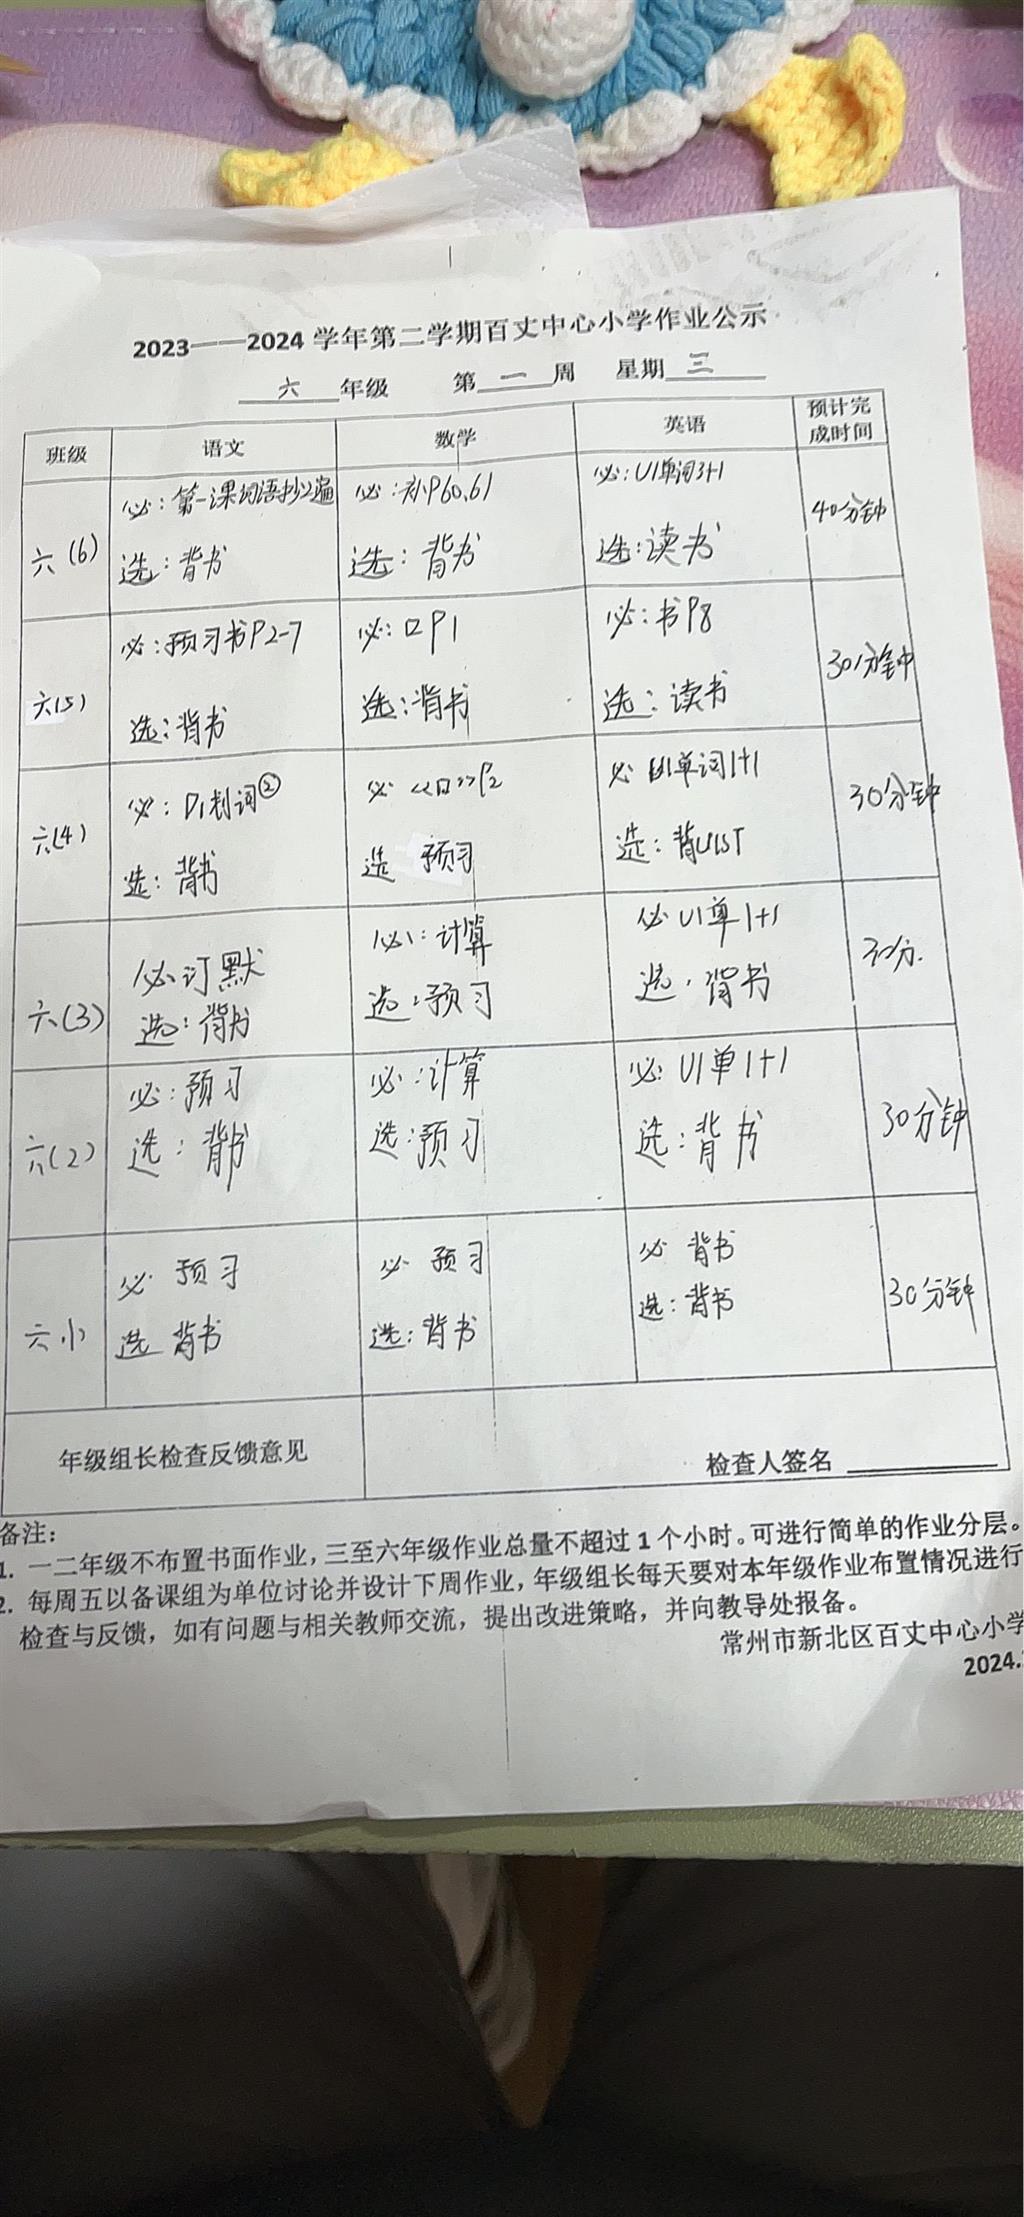 2023——2024 学年第二学期百丈中心小学作业公示
六 年级 第 一 周 星期 三
班级 语文 数学 英语 预计完成时间
六(6)
必：第一课词语抄2遍
选：背书
必：补P60.61
选：背书
必：U1单词3+1
选：读书
40分钟
六(5)
必：预习书P2-7
选：背书
必：口P1
选：背书
必：书P8
选：读书
30分钟
六(4)
必：P1制词②
选：背书
必 《口》P2
选 预习
必 U1单词1+1
选：背U1ST
30分钟
六(3)
必 订默
选：背书
必：计算
选：预习
必 U1单1+1
选：背书
30分.
六(2)
必：预习
选：背书
必：计算
选：预习
必：U1单1+1
选：背书
30分钟
六(1)
必 预习
选 背书
必 预习
选：背书
必 背书
选：背书
30分钟
年级组长检查反馈意见
检查人签名
备注：
1. 一二年级不布置书面作业，三至六年级作业总量不超过 1 个小时。可进行简单的作业分层。
2. 每周五以备课组为单位讨论并设计下周作业，年级组长每天要对本年级作业布置情况进行
检查与反馈，如有问题与相关教师交流，提出改进策略，并向教导处报备。
常州市新北区百丈中心小学
2024.